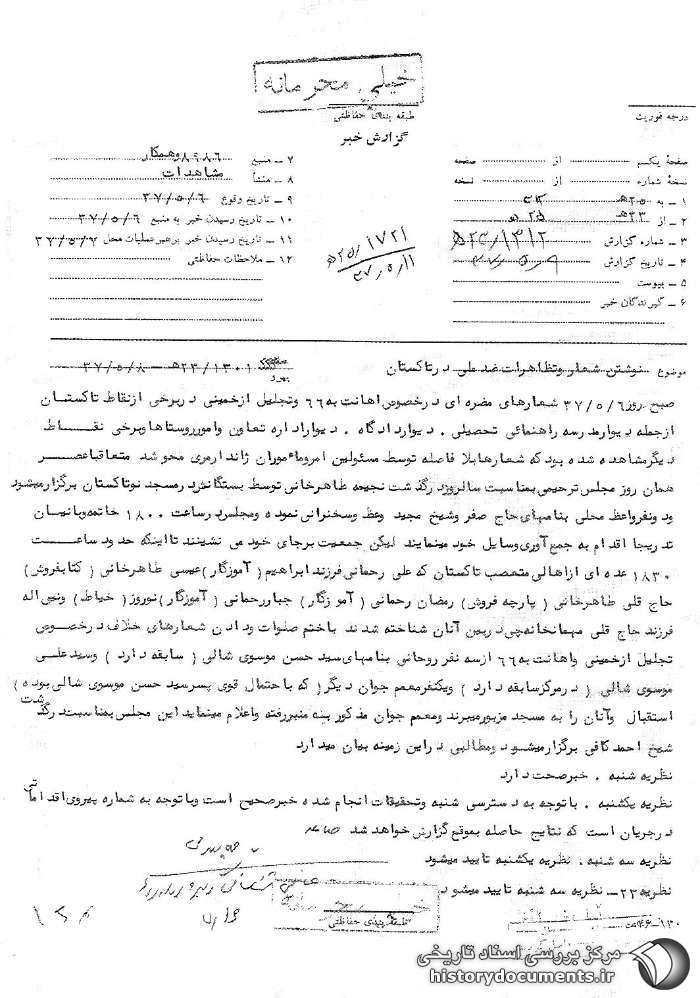 خیلی محرمانه
طبقه بندی حفاظتی
گزارش خبر
درجه فوریت
صفحهٔ یکم از صفحه
نسخهٔ شماره از نسخه
۱ – به
۲ – از
۳ – شماره گزارش
۴ – تاریخ گزارش
۵ – پیوست
۶ – گیرندگان خبر
۷ – منبع ۸۹۸۶ وهمکار
۸ – منشأ مشاهدات
۹ – تاریخ وقوع ۳۷/۵/۶
۱۰ – تاریخ رسیدن خبر به منبع ۳۷/۵/۶
۱۱ – تاریخ رسیدن خبر به رهبر عملیات محل ۳۷/۵/۷
۱۲ – ملاحظات حفاظتی
۲۵/۱۷۲۱ه
۳۷/۵/۱۱
موضوع نوشتن شعار وتظاهرات ضد ملی درتاکستان ۲۳/۱۳۰۱ه – ۳۷/۵/۸
صبح روز ۳۷/۵/۶ شعارهای مضره ای درخصوص اهانت به ۶۶ وتجلیل ازخمینی دربرخی ازنقاط تاکستان
ازجمله دیوارمدرسه راهنمائی تحصیلی . دیواردادگاه . دیواراداره تعاون وامورروستاها وبرخی نقاط
دیگرمشاهده شده بود که شعارها بلا فاصله توسط مسئولین امروماءموران ژاندارمری محو شد متعاقباعصر
همان روز مجلس ترحیمی بمناسبت سالروزدرگذشت نجیمه طاهرخانی توسط بستگانش درمسجد نوتاکستان برگزارمیشود
ودونفرواعظ محلی بنامهای حاج صفر وشیخ مجید وعظ وسخنرانی نموده ومجلس درساعت ۱۸۰۰ خاتمه وبانیان
تدریجا اقدام به جمع آوری وسایل خود مینمایند لیکن جمعیت برجای خود می نشینند تااینکه حدود ساعت
۱۸۳۰ عده ای ازاهالی متعصب تاکستان که علی رحمانی فرزند ابراهیم (آموزگار)عیسی طاهرخانی (کتابفروش)
حاج قلی طاهرخانی (پارچه فروش) رمضان رحمانی (آموزگار) جباررحمانی (آموزگار)نوروز (خیاط) ونبی اله
فرزند حاج قلی مهمانخانه چی دربین آنان شناخته شدند باختم صلوات ودادن شعارهای خلاف درخصوص
تجلیل ازخمینی واهانت به ۶۶ ازسه نفر روحانی بنامهای سید حسن موسوی شالی (سابقه دارد) وسیدعلی
موسوی شالی (درمرکزسابقه دارد) ویکنفرمعمم جوان دیگر( که باحتمال قوی پسرسید حسن موسوی شالی بوده)
استقبال وآنان را به مسجد مزبورمیبرند ومعمم جوان مذکور به منبررفته واعلام مینماید این مجلس بمناسبت درگذشت
شیخ احمد کافی برگزارمیشود ومطالبی دراین زمینه بیان میدارد
نظریه شنبه . خبرصحت دارد
نظریه یکشنبه . باتوجه به دسترسی شنبه وتحقیقات انجام شده خبرصحیح است وباتوجه به شماره پیروی اقداماتی
درجریان است که نتایج حاصله بموقع گزارش خواهد شد
نظریه سه شنبه . نظریه یکشنبه تایید میشود
نظریه ۲۳ه – نظریه سه شنبه تایید میشود
طبقه بندی حفاظتی
مرکز بررسی اسناد تاریخی
historydocuments.ir